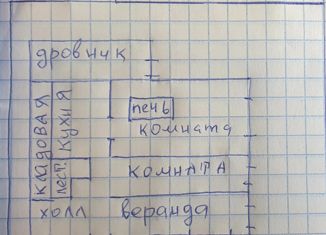 дровник
кладовая
кухня
лест.
печь
комната
комната
холл
веранда